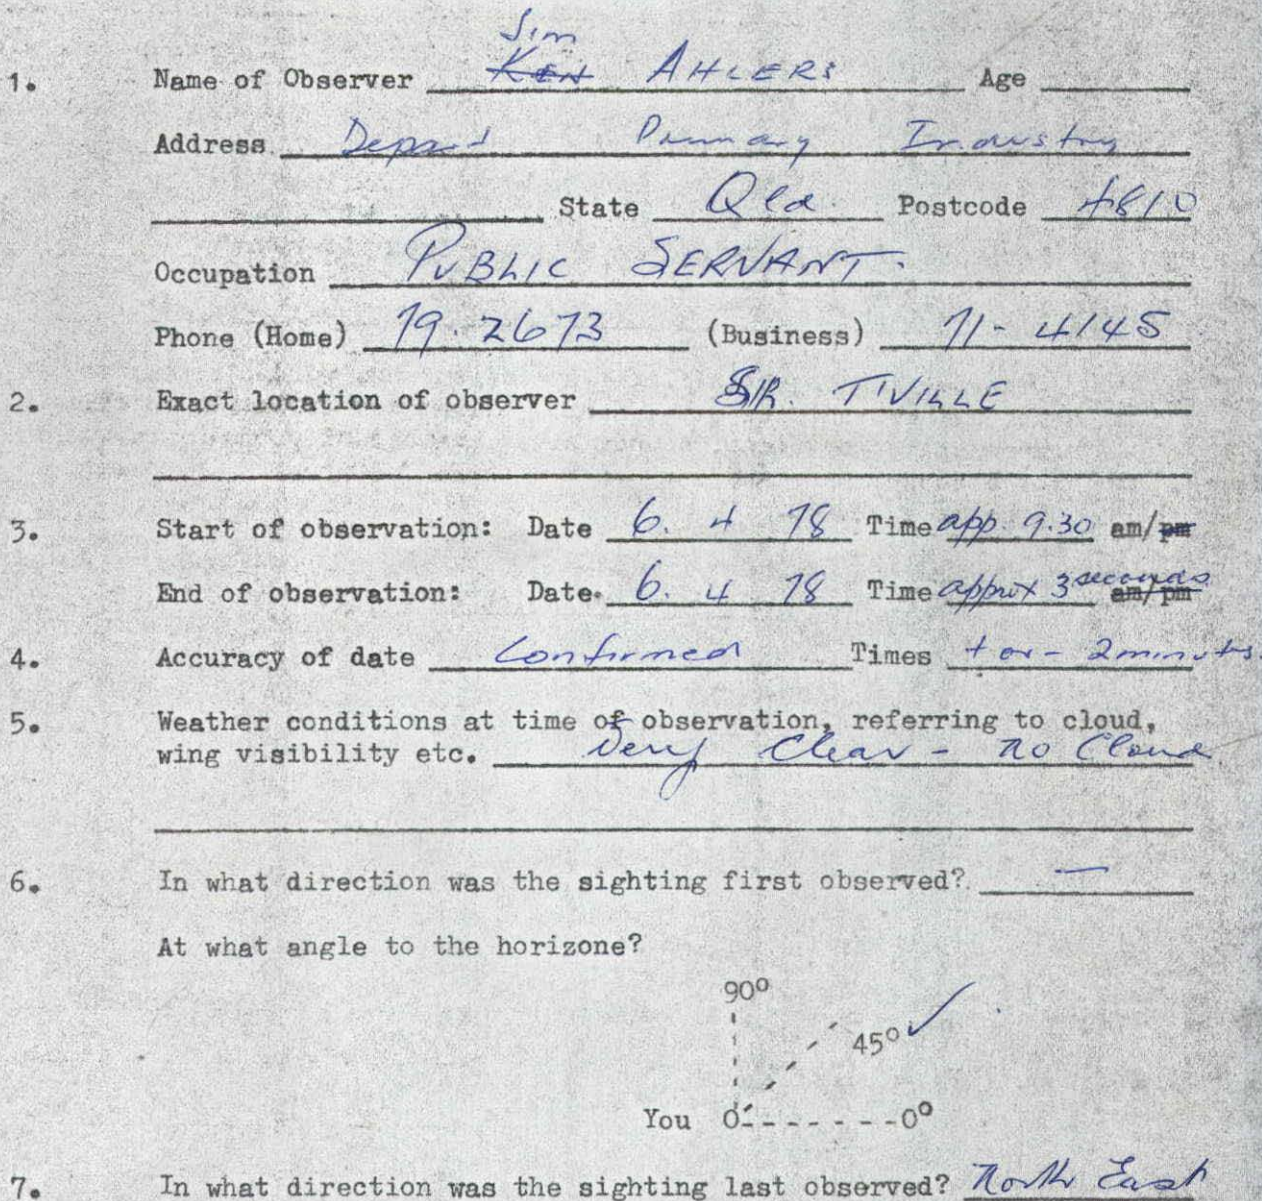 Jim
1. Name of Observer Ken AHLERS Age
Address Depart Primary Industry
State Qld. Postcode 4810
Occupation PUBLIC SERVANT.
Phone (Home) 79.2673 (Business) 71-4145
2. Exact location of observer T'VILLE
3. Start of observation: Date 6. 4 78 Time app 9.30 am/pm
End of observation: Date. 6. 4 78 Time approx 3 seconds am/pm
4. Accuracy of date Confirmed Times + or - 2 minutes.
5. Weather conditions at time of observation, referring to cloud,
wing visibility etc. Very Clear - no Cloud
6. In what direction was the sighting first observed? —
At what angle to the horizone?
90°
45° ✓
You 0 - - - - - - - 0°
7. In what direction was the sighting last observed? North East